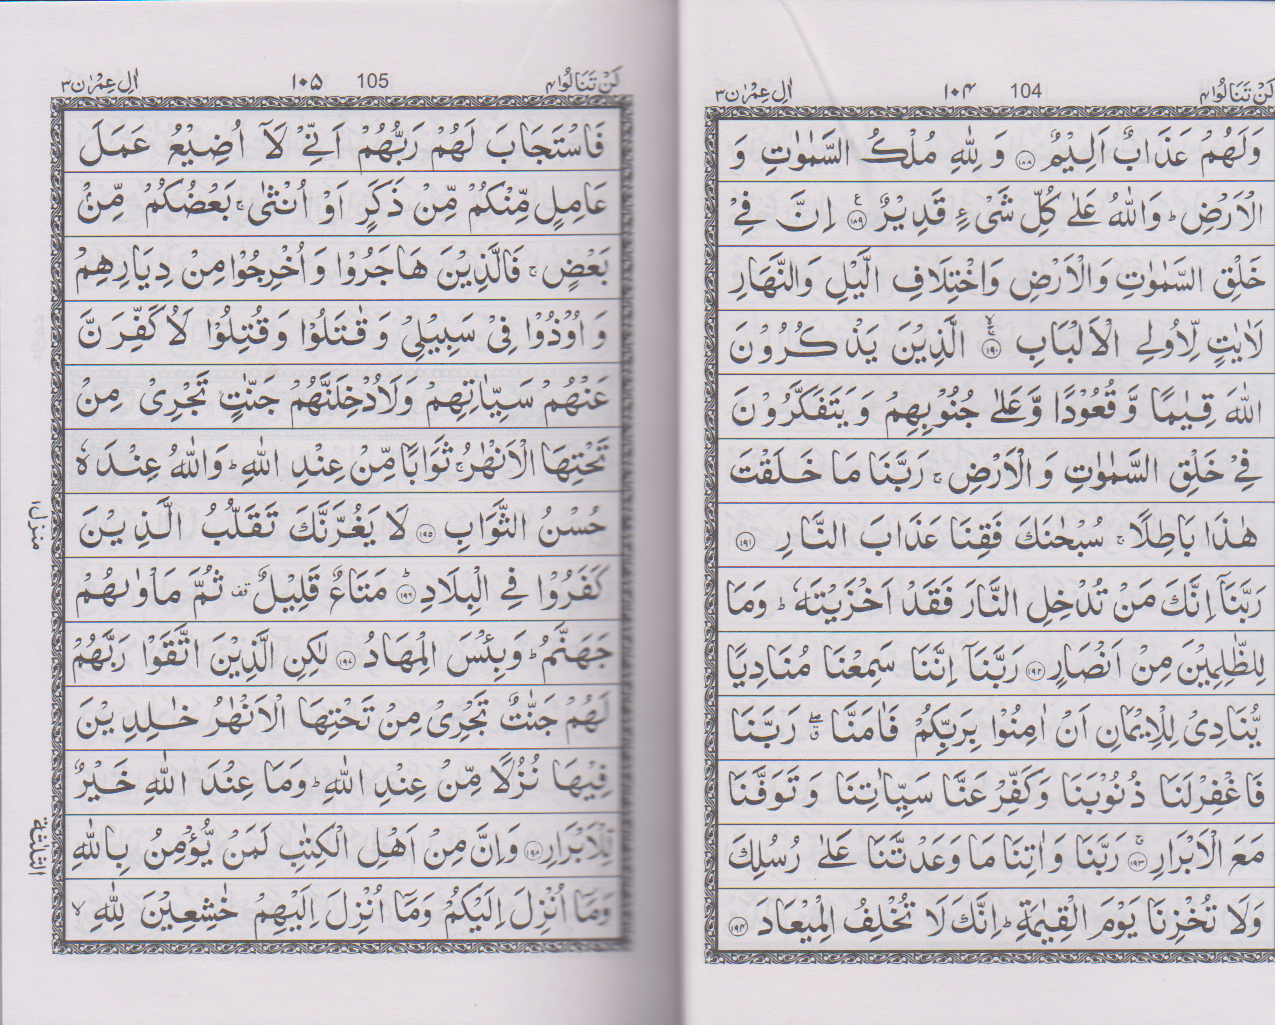 لَنْ تَنَالُوا ۴ ۱۰۴ 104 اٰلِ عِمْرٰن ۳
وَلَهُمْ عَذَابٌ اَلِيْمٌ ۝۱۸۸ وَ لِلّٰهِ مُلْكُ السَّمٰوٰتِ وَ
الْاَرْضِ ؕ وَاللّٰهُ عَلٰى كُلِّ شَىْءٍ قَدِيْرٌ ۝۱۸۹ ع اِنَّ فِىْ
خَلْقِ السَّمٰوٰتِ وَالْاَرْضِ وَاخْتِلَافِ الَّيْلِ وَالنَّهَارِ
لَاٰيٰتٍ لِّاُولِى الْاَلْبَابِ ۝۱۹۰ۚۙ الَّذِيْنَ يَذْكُرُوْنَ
اللّٰهَ قِيٰمًا وَّقُعُوْدًا وَّعَلٰى جُنُوْبِهِمْ وَيَتَفَكَّرُوْنَ
فِىْ خَلْقِ السَّمٰوٰتِ وَ الْاَرْضِ ۚ رَبَّنَا مَا خَلَقْتَ
هٰذَا بَاطِلًا ۚ سُبْحٰنَكَ فَقِنَا عَذَابَ النَّارِ ۝۱۹۱
رَبَّنَاۤ اِنَّكَ مَنْ تُدْخِلِ النَّارَ فَقَدْ اَخْزَيْتَهٗ ؕ وَمَا
لِلظّٰلِمِيْنَ مِنْ اَنْصَارٍ ۝۱۹۲ رَبَّنَاۤ اِنَّنَا سَمِعْنَا مُنَادِيًا
يُّنَادِىْ لِلْاِيْمَانِ اَنْ اٰمِنُوْا بِرَبِّكُمْ فَاٰمَنَّا ۖۗ رَبَّنَا
فَاغْفِرْلَنَا ذُنُوْبَنَا وَكَفِّرْعَنَّا سَيِّاٰتِنَا وَتَوَفَّنَا
مَعَ الْاَبْرَارِ ۝۱۹۳ۚ رَبَّنَا وَاٰتِنَا مَا وَعَدْتَّنَا عَلٰى رُسُلِكَ
وَلَا تُخْزِنَا يَوْمَ الْقِيٰمَةِ ؕ اِنَّكَ لَا تُخْلِفُ الْمِيْعَادَ ۝۱۹۴
لَنْ تَنَالُوا ۴ 105 ۱۰۵ اٰلِ عِمْرٰن ۳
فَاسْتَجَابَ لَهُمْ رَبُّهُمْ اَنِّىْ لَاۤ اُضِيْعُ عَمَلَ
عَامِلٍ مِّنْكُمْ مِّنْ ذَكَرٍ اَوْ اُنْثٰى ۚ بَعْضُكُمْ مِّنْۢ
بَعْضٍ ۚ فَالَّذِيْنَ هَاجَرُوْا وَاُخْرِجُوْا مِنْ دِيَارِهِمْ
وَاُوْذُوْا فِىْ سَبِيْلِىْ وَقٰتَلُوْا وَقُتِلُوْا لَاُكَفِّرَنَّ
عَنْهُمْ سَيِّاٰتِهِمْ وَلَاُدْخِلَنَّهُمْ جَنّٰتٍ تَجْرِىْ مِنْ
تَحْتِهَا الْاَنْهٰرُ ۚ ثَوَابًا مِّنْ عِنْدِ اللّٰهِ ؕ وَاللّٰهُ عِنْدَهٗ
حُسْنُ الثَّوَابِ ۝۱۹۵ لَا يَغُرَّنَّكَ تَقَلُّبُ الَّذِيْنَ
كَفَرُوْا فِى الْبِلَادِ ۝۱۹۶ؕ مَتَاعٌ قَلِيْلٌ قف ثُمَّ مَاْوٰىهُمْ
جَهَنَّمُ ؕ وَبِئْسَ الْمِهَادُ ۝۱۹۷ لٰكِنِ الَّذِيْنَ اتَّقَوْا رَبَّهُمْ
لَهُمْ جَنّٰتٌ تَجْرِىْ مِنْ تَحْتِهَا الْاَنْهٰرُ خٰلِدِيْنَ
فِيْهَا نُزُلًا مِّنْ عِنْدِ اللّٰهِ ؕ وَمَا عِنْدَ اللّٰهِ خَيْرٌ
لِّلْاَبْرَارِ ۝۱۹۸ وَاِنَّ مِنْ اَهْلِ الْكِتٰبِ لَمَنْ يُّؤْمِنُ بِاللّٰهِ
وَمَاۤ اُنْزِلَ اِلَيْكُمْ وَمَاۤ اُنْزِلَ اِلَيْهِمْ خٰشِعِيْنَ لِلّٰهِ ۙ
منزل۱
الثلثة